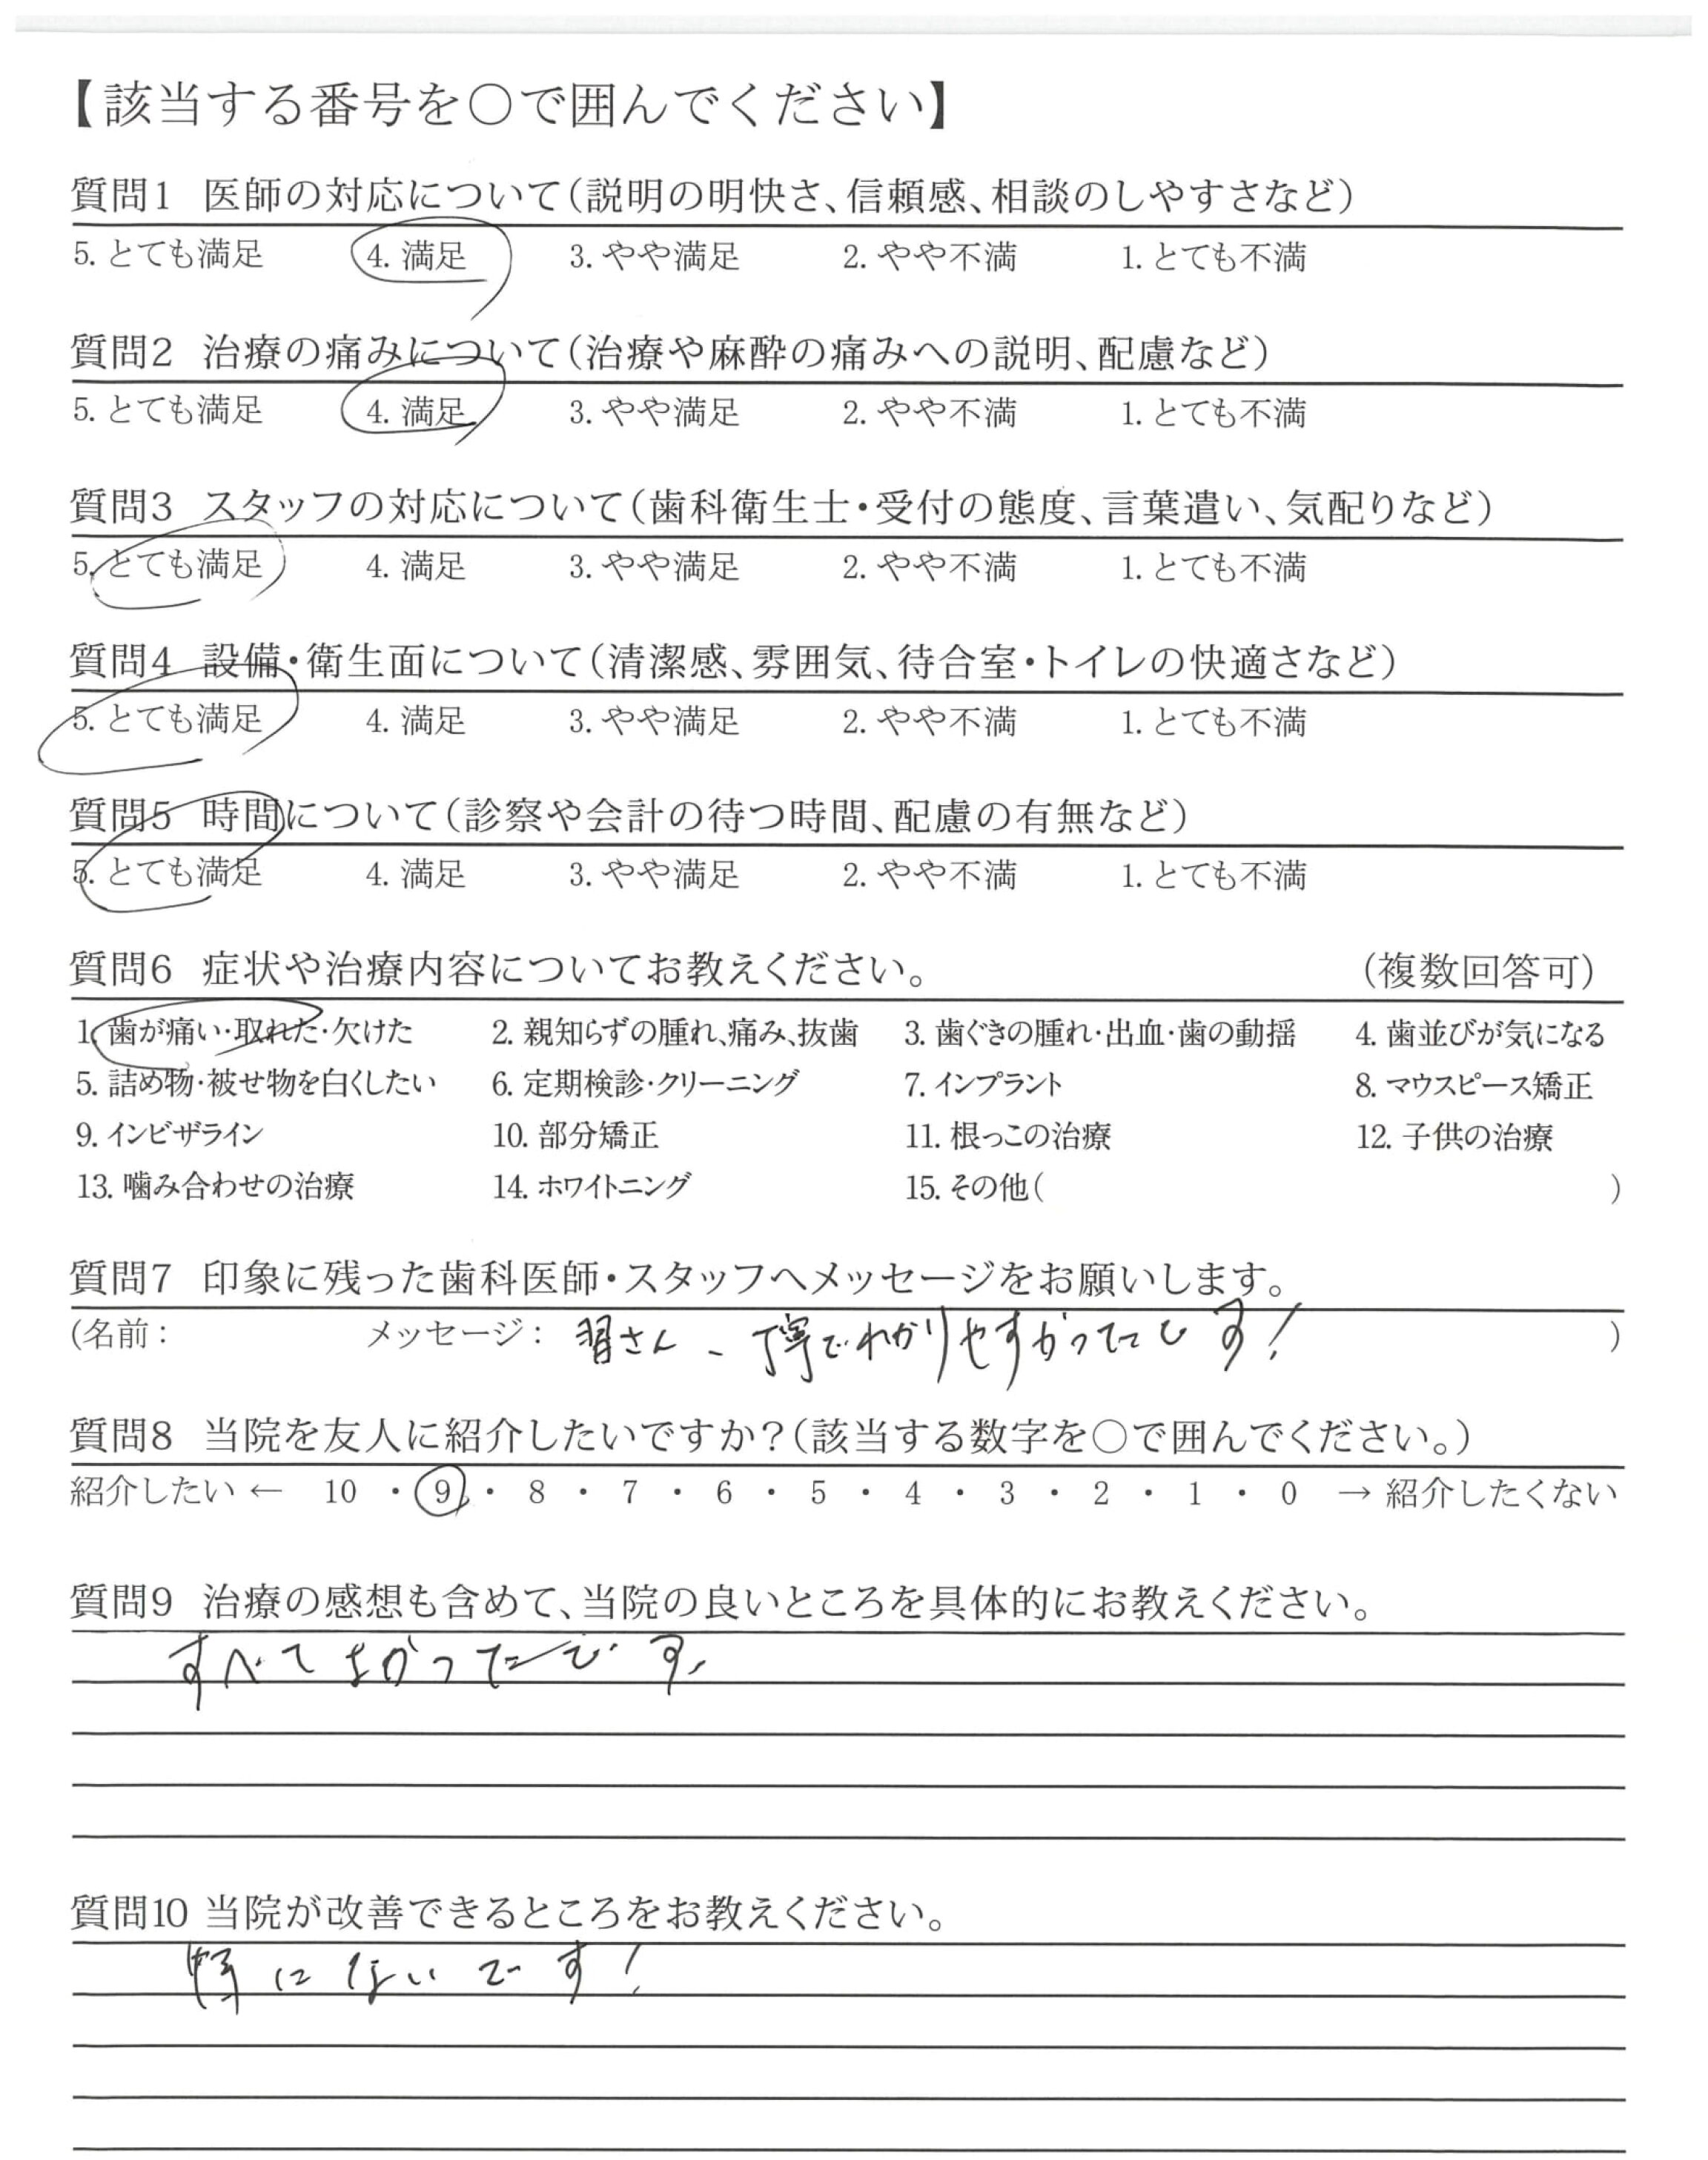 【該当する番号を○で囲んでください】
質問1 医師の対応について(説明の明快さ、信頼感、相談のしやすさなど)
5. とても満足 4. 満足 3. やや満足 2. やや不満 1. とても不満
質問2 治療の痛みについて(治療や麻酔の痛みへの説明、配慮など)
5. とても満足 4. 満足 3. やや満足 2. やや不満 1. とても不満
質問3 スタッフの対応について(歯科衛生士・受付の態度、言葉遣い、気配りなど)
5. とても満足 4. 満足 3. やや満足 2. やや不満 1. とても不満
質問4 設備・衛生面について(清潔感、雰囲気、待合室・トイレの快適さなど)
5. とても満足 4. 満足 3. やや満足 2. やや不満 1. とても不満
質問5 時間について(診察や会計の待つ時間、配慮の有無など)
5. とても満足 4. 満足 3. やや満足 2. やや不満 1. とても不満
質問6 症状や治療内容についてお教えください。 (複数回答可)
1. 歯が痛い・取れた・欠けた 2. 親知らずの腫れ、痛み、抜歯 3. 歯ぐきの腫れ・出血・歯の動揺 4. 歯並びが気になる
5. 詰め物・被せ物を白くしたい 6. 定期検診・クリーニング 7. インプラント 8. マウスピース矯正
9. インビザライン 10. 部分矯正 11. 根っこの治療 12. 子供の治療
13. 噛み合わせの治療 14. ホワイトニング 15. その他( )
質問7 印象に残った歯科医師・スタッフへメッセージをお願いします。
(名前: メッセージ: さん、丁寧でわかりやすかったです! )
質問8 当院を友人に紹介したいですか?(該当する数字を○で囲んでください。)
紹介したい ← 10 ・ 9 ・ 8 ・ 7 ・ 6 ・ 5 ・ 4 ・ 3 ・ 2 ・ 1 ・ 0 → 紹介したくない
質問9 治療の感想も含めて、当院の良いところを具体的にお教えください。
すべてよかったです。
質問10 当院が改善できるところをお教えください。
特にないです!